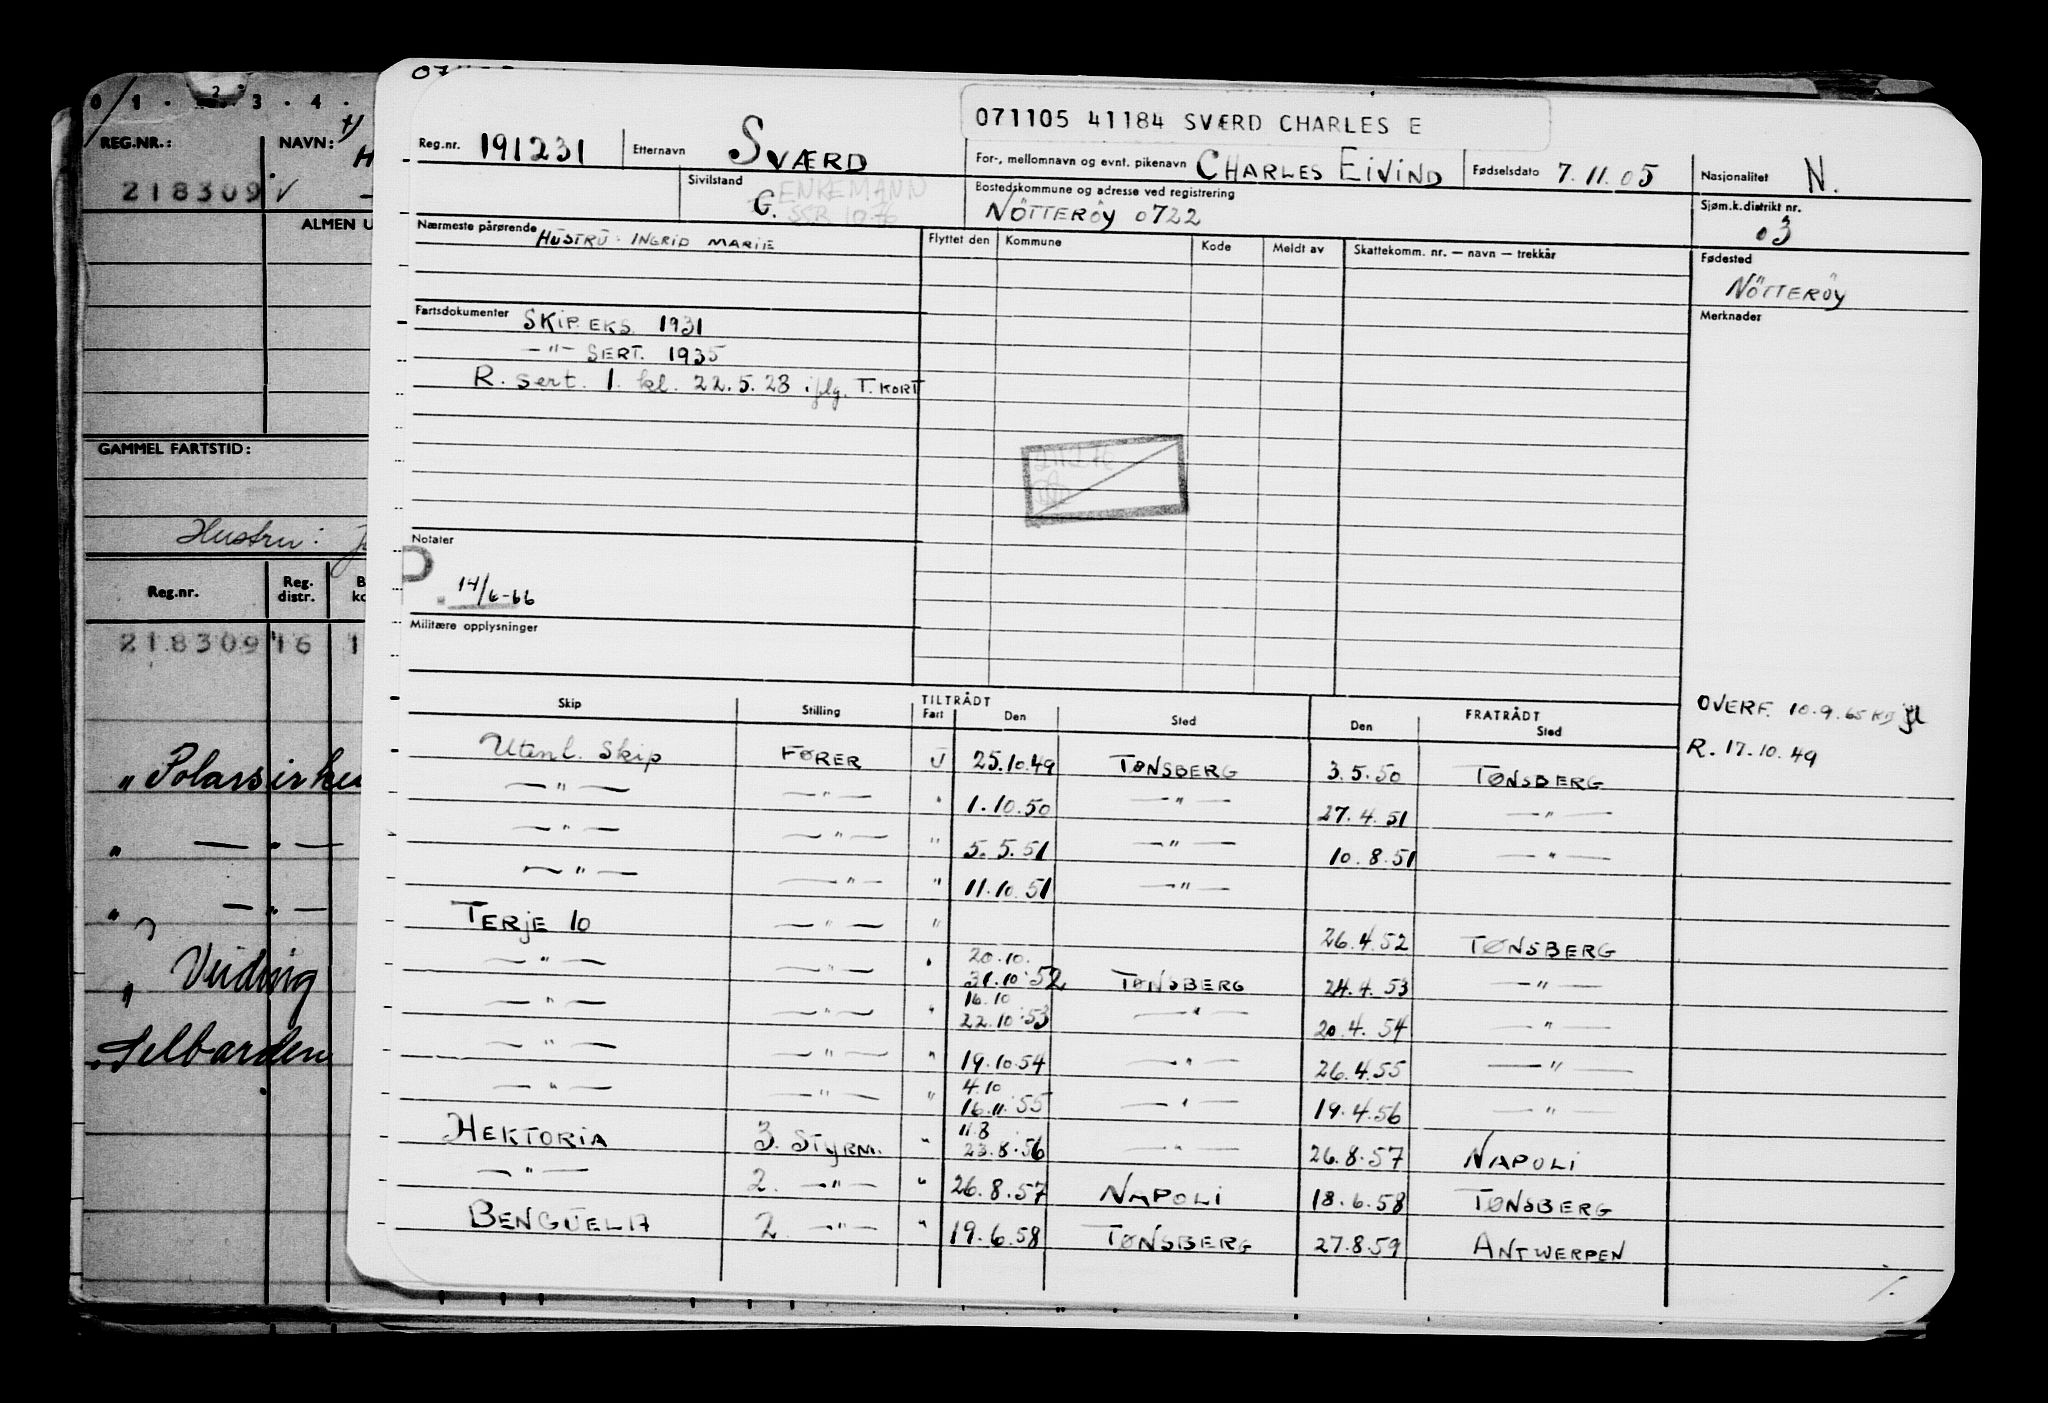 0 1 · 2 · 3 · 4 ·
REG.NR.: NAVN:
218309
ALMEN U
GAMMEL FARTSTID:
Hustru:
Reg.nr. Reg. distr.
218309 16 1
" Polarsirke
" — " —
" — " —
" Viding
" Selbarden
071105 41184 SVÆRD CHARLES E
Reg.nr. 191231 Etternavn SVÆRD For-, mellomnavn og evnt. pikenavn CHARLES EIVIND Fødselsdato 7.11.05 Nasjonalitet N.
Sivilstand G. ENKEMANN SSR 10.76 Bostedskommune og adresse ved registrering NÖTTERÖY 0722 Sjøm.k.distrikt nr. 03
Nærmeste pårørende HUSTRU: INGRID MARIE Flyttet den Kommune Kode Meldt av Skattekomm. nr. — navn — trekkår Fødested NÖTTERÖY
Merknader
Fartsdokumenter SKIP.EKS. 1931
—"— SERT. 1935
R. sert. 1. kl. 22.5.23 iflg. T. KORT
Notater
14/6-66
Militære opplysninger
OVERF. 10.9.65
R. 17.10.49
TILTRÅDT FRATRÅDT
Skip Stilling Fart Den Sted Den Sted
Utenl. Skip FØRER U 25.10.49 TØNSBERG 3.5.50 TØNSBERG
—"— —"— " 1.10.50 —"— 27.4.51 —"—
—"— —"— " 5.5.51 —"— 10.8.51 —"—
—"— —"— " 11.10.51 —"—
TERJE 10 —"— " 26.4.52 TØNSBERG
—"— —"— " 20.10. 31.10.52 TØNSBERG 24.4.53 —"—
—"— —"— " 16.10 22.10.53 —"— 20.4.54 —"—
—"— —"— " 19.10.54 —"— 26.4.55 —"—
—"— —"— " 4.10 16.11.55 —"— 19.4.56 —"—
HEKTORIA 3. STYRM. " 11.8 23.8.56 —"— 26.8.57 NAPOLI
—"— 2. —"— " 26.8.57 NAPOLI 18.6.58 TØNSBERG
BENGUELA 2 —"— " 19.6.58 TØNSBERG 27.8.59 ANTWERPEN